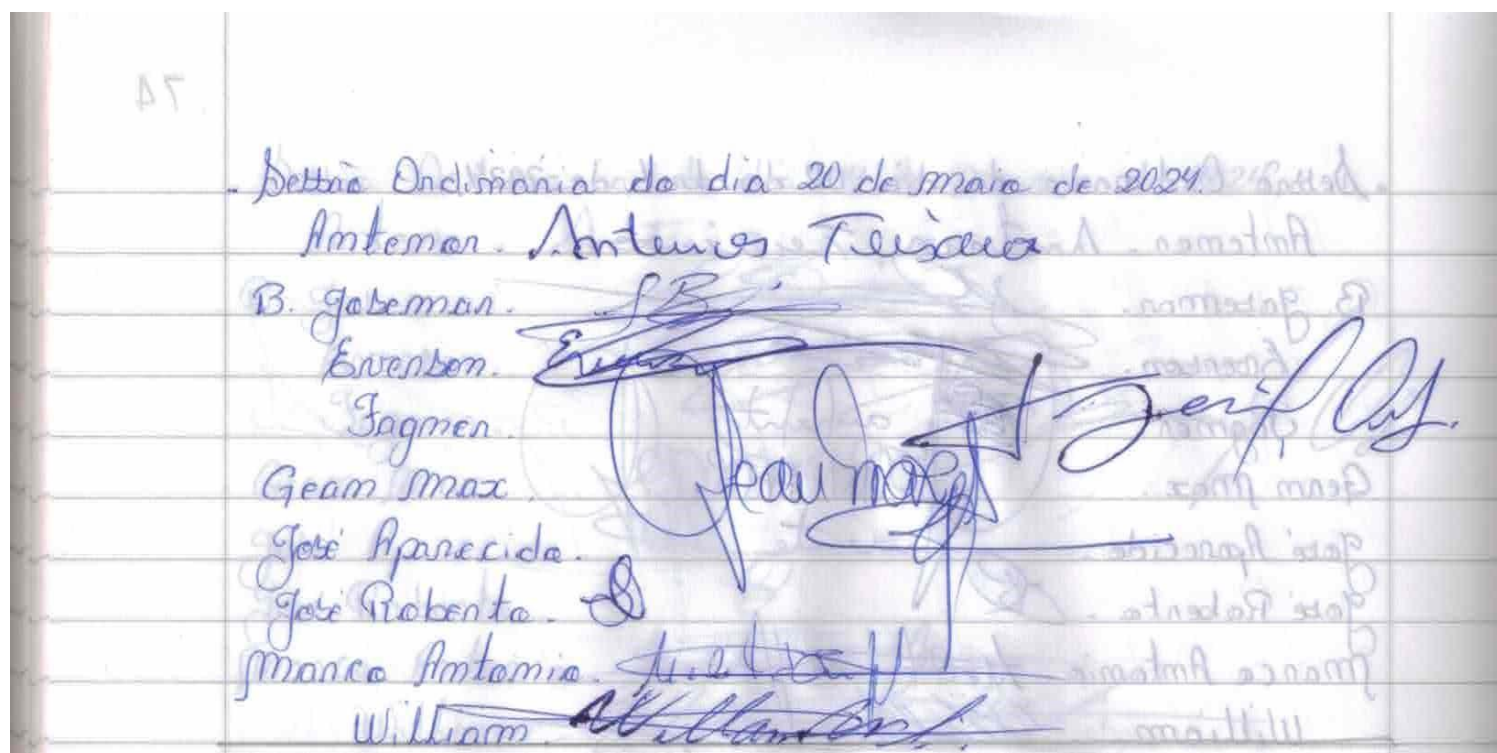 . Sessão Ordinária do dia 20 de maio de 2024.
Antemor. Antemor Teixeira
B. Josemar.
Everson.
Fagner.
Gean Max.
Gean max
José Aparecido.
José Roberto.
Marco Antonio.
William.